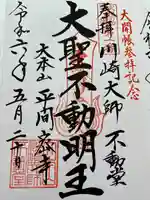 大開帳参拝記念
奉拝 川崎大師 不動堂
大聖不動明王
大本山 平間寺
令和六年五月二十日